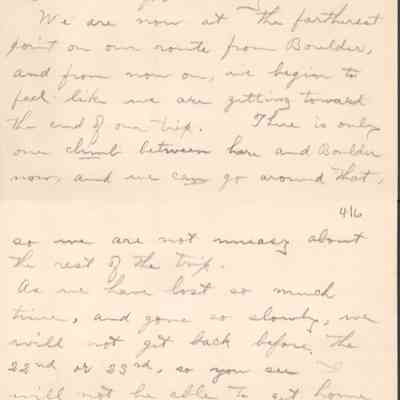 We are now at the farthest
point on our route from Boulder,
and from now on, we begin to
feel like we are getting toward
the end of our trip. There is only
one climb between here and Boulder
now, and we can go around that,
416
so we are not uneasy about
the rest of the trip.
As we have lost so much
time, and gone so slowly, we
will not get back before the
22nd or 23rd, so you see I
will not be able to get home